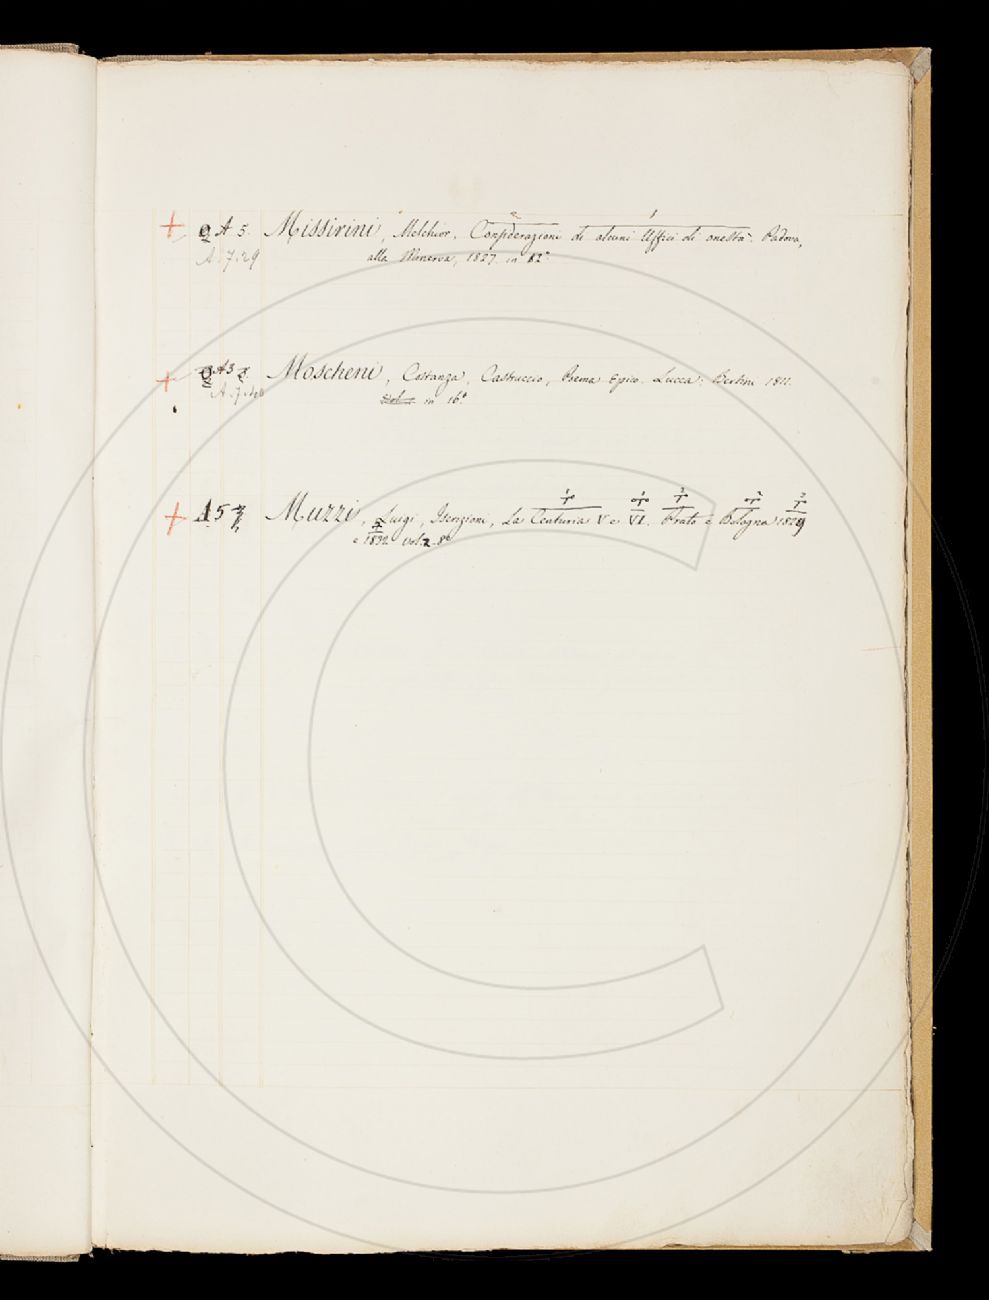 A 5. Missirini, Melchior. Considerazioni di alcuni Uffici di onestà. Padova,
A. 7. 29 alla Minerva, 1827. in 12°.
A 3 Moscheni, Costanza, Castruccio, Poema Epico. Lucca. Bertini 1811.
A. 7. in 16°
A 5 Muzzi, Luigi, Iscrizioni, la Centuria V e VI. Prato e Bologna 1829
e 1832 vol. 2. 8°